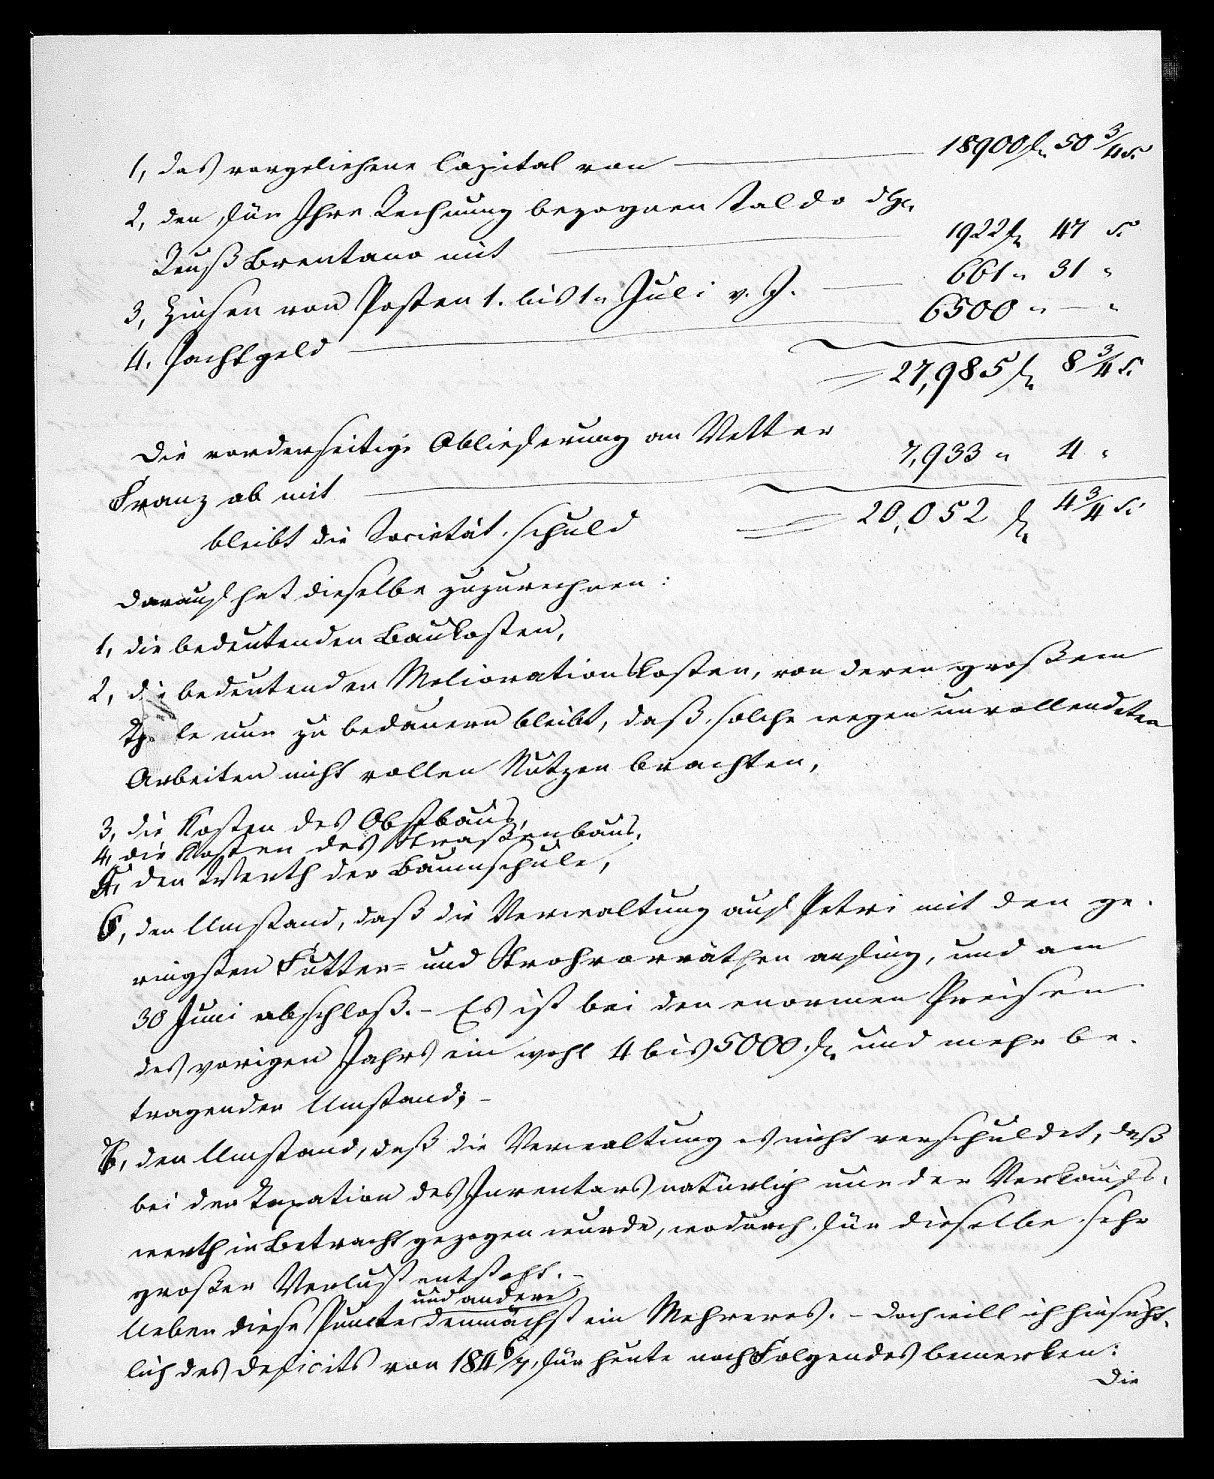 1, das vorgeliehene Capital von — 18900 f. 50 3/4 X.
2, den für Ihre Rechnung bezognen Saldo
Reuß Brentano mit — 1922 f. 47 X.
3, Zinsen von Posten 1. bis 1n Juli v. J. — 661 " 31 "
4. Pachtgeld — 6500 " — "
27,985 f. 8 3/4 X.
Die vorderseitige Ablieferung an Vetter
Franz ab mit — 7,933 " 4 "
bleibt die Societät schuld 20,052 f. 4 3/4 X.
Darauf hat dieselbe zuzurechnen:
1, die bedeutenden Baukosten,
2, die bedeutenden Meliorationskosten, von deren großem
Theile nun zu bedauern bleibt, daß solche wegen unvollendeten
Arbeiten nicht vollen Nutzen brachten,
3, die Kosten des Obstbaus,
4, die Kosten des Straßenbaus,
5, den Werth der Baumschule,
6, den Umstand, daß die Verwaltung auf Petri mit den ge-
ringsten Futter= und Strohvorräthen anfing, und am
30 Juni abschloß. – Es ist bei den enormen Preisen
des vorigen Jahrs ein wohl 4 bis 5000 f. und mehr be-
tragender Umstand; –
den Umstand, daß die Verwaltung es nicht verschuldet, daß
bei der Taxation des Inventars natürlich nur der Verkaufs-
werth in Betracht gezogen wurde, wodurch für dieselbe sehr
großer Verlust entsteht. –
Ueber diese und andere Puncte demnächst ein Mehreres. – Doch will ich hinsicht-
lich des Deficits von 1846/7, für heute noch Folgendes bemerken:
Die